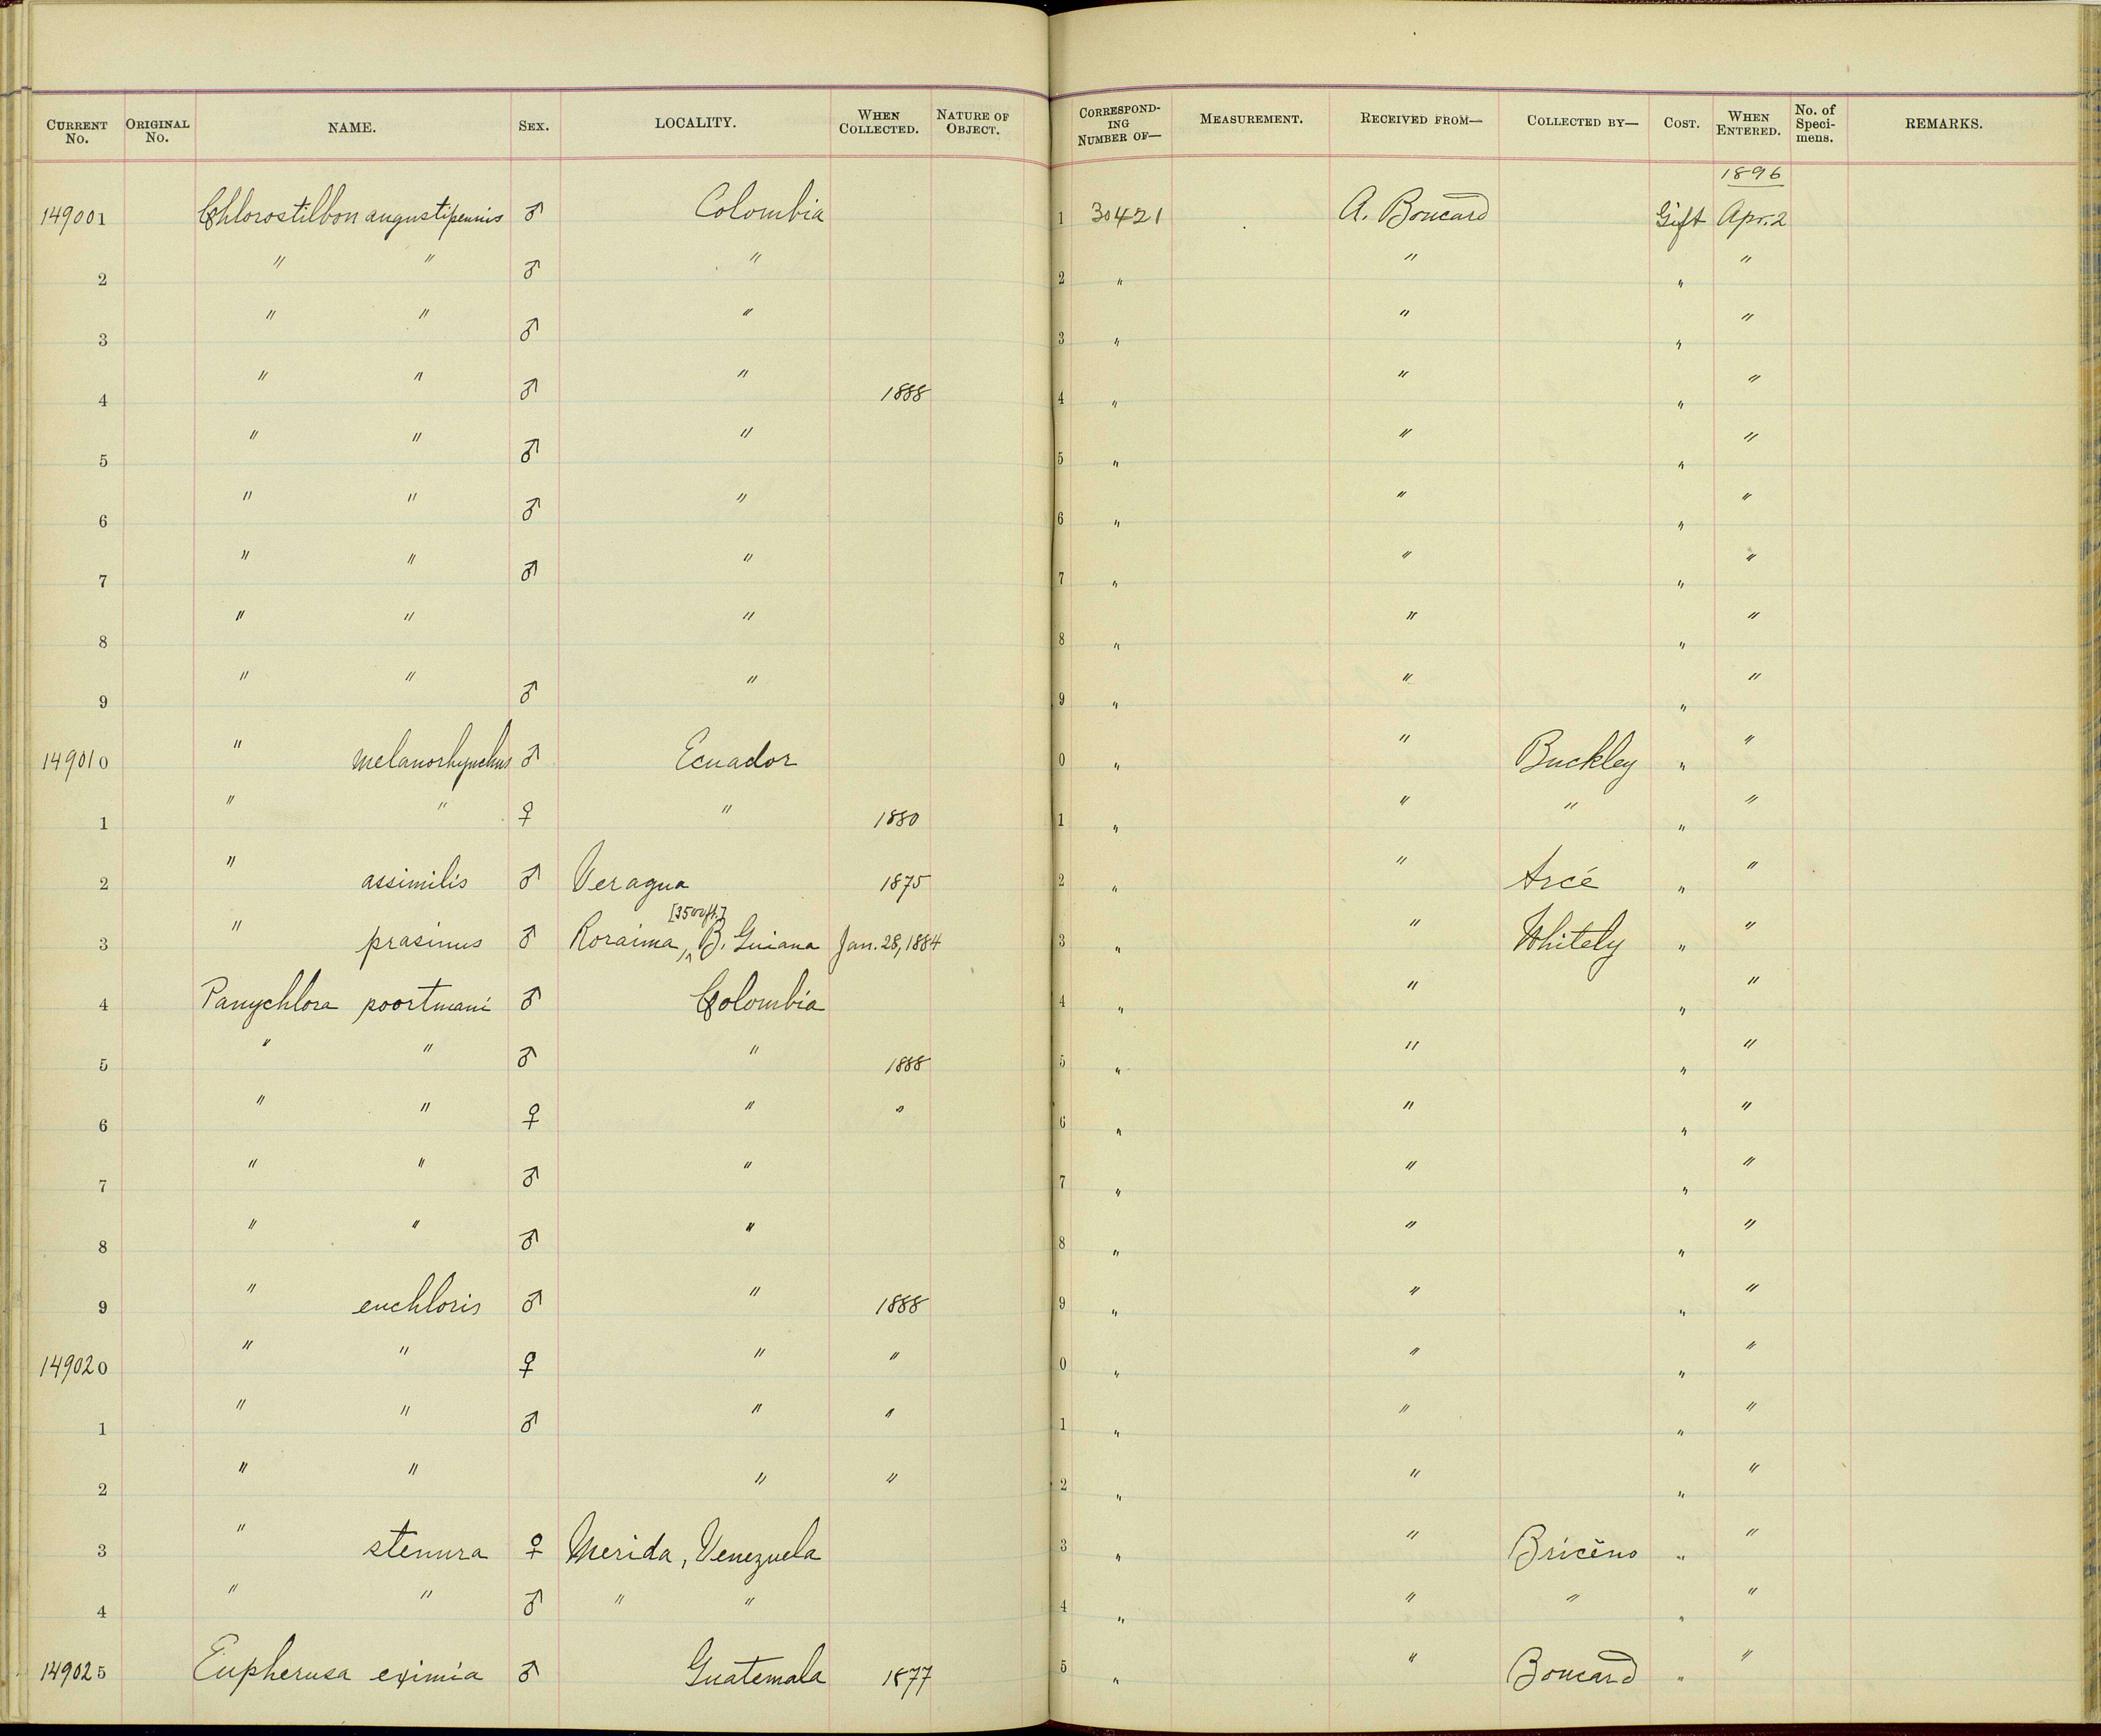 CURRENT No. ORIGINAL No. NAME. SEX. LOCALITY. WHEN COLLECTED. NATURE OF OBJECT. CORRESPONDING NUMBER OF— MEASUREMENT. RECEIVED FROM— COLLECTED BY— COST. WHEN ENTERED. No. of Specimens. REMARKS.
1896
149001 Chlorostilbon angustipennis ♂ Colombia 1 30421 A. Boucard Gift Apr. 2
2 " " ♂ " 2 " " " "
3 " " ♂ " 3 " " " "
4 " " ♂ " 1888 4 " " " "
5 " " ♂ " 5 " " " "
6 " " ♂ " 6 " " " "
7 " " ♂ " 7 " " " "
8 " " " 8 " " " "
9 " " ♂ " 9 " " " "
149010 " melanorhynchus ♂ Ecuador 0 " " Buckley " "
1 " " ♀ " 1880 1 " " " " "
2 " assimilis ♂ Veragua 1875 2 " " Arcé " "
[3500ft.]
3 " prasinus ♂ Roraima, ^ B. Guiana Jan. 28, 1884 3 " " Whitely " "
4 Panychlora poortmani ♂ Colombia 4 " " " "
5 " " ♂ " 1888 5 " " " "
6 " " ♀ " " 6 " " " "
7 " " ♂ " 7 " " " "
8 " " ♂ " 8 " " " "
9 " euchloris ♂ " 1888 9 " " " "
149020 " " ♀ " " 0 " " " "
1 " " ♂ " " 1 " " " "
2 " " " " 2 " " " "
3 " stenura ♀ Merida, Venezuela 3 " " Briceño " "
4 " " ♂ " " 4 " " " " "
149025 Eupherusa eximia ♂ Guatemala 1877 5 " " Boucard " "